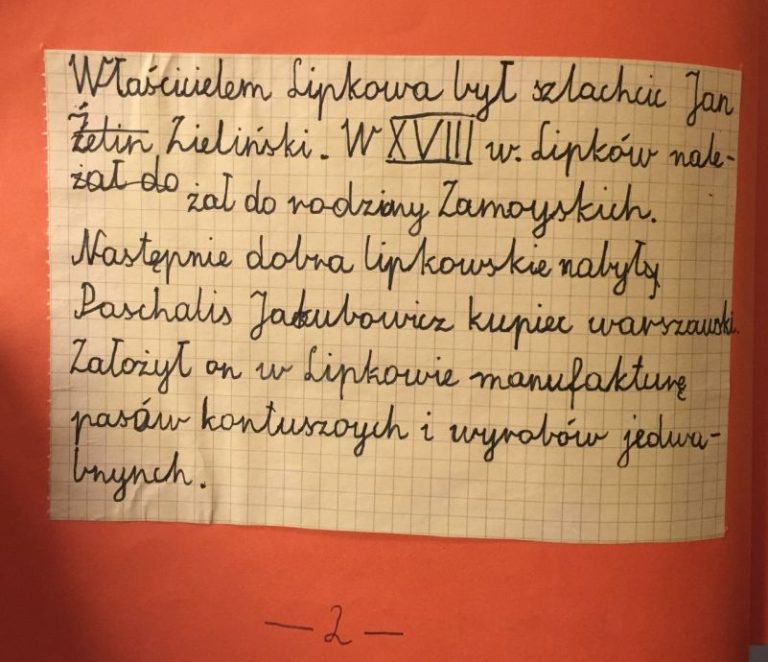 Właścicielem Lipkowa był szlachcic Jan
Żelin Zieliński. W XVIII w. Lipków nale-
żał do żał do rodziny Zamoyskich.
Następnie dobra lipkowskie nabył
Paschalis Jakubowicz kupiec warszawski.
Założył on w Lipkowie manufakturę
pasów kontuszoych i wyrobów jedwa-
bnynch.
- 2 -